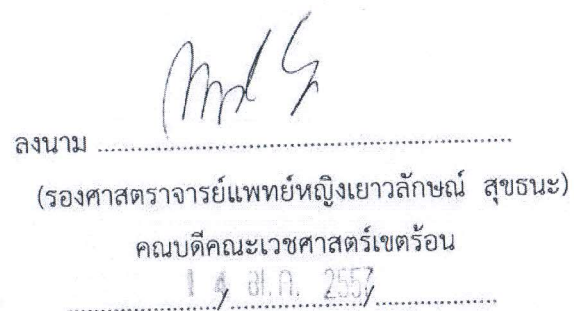 ลงนาม ................................................................
(รองศาสตราจารย์แพทย์หญิงเยาวลักษณ์ สุขธนะ)
คณบดีคณะเวชศาสตร์เขตร้อน
2557